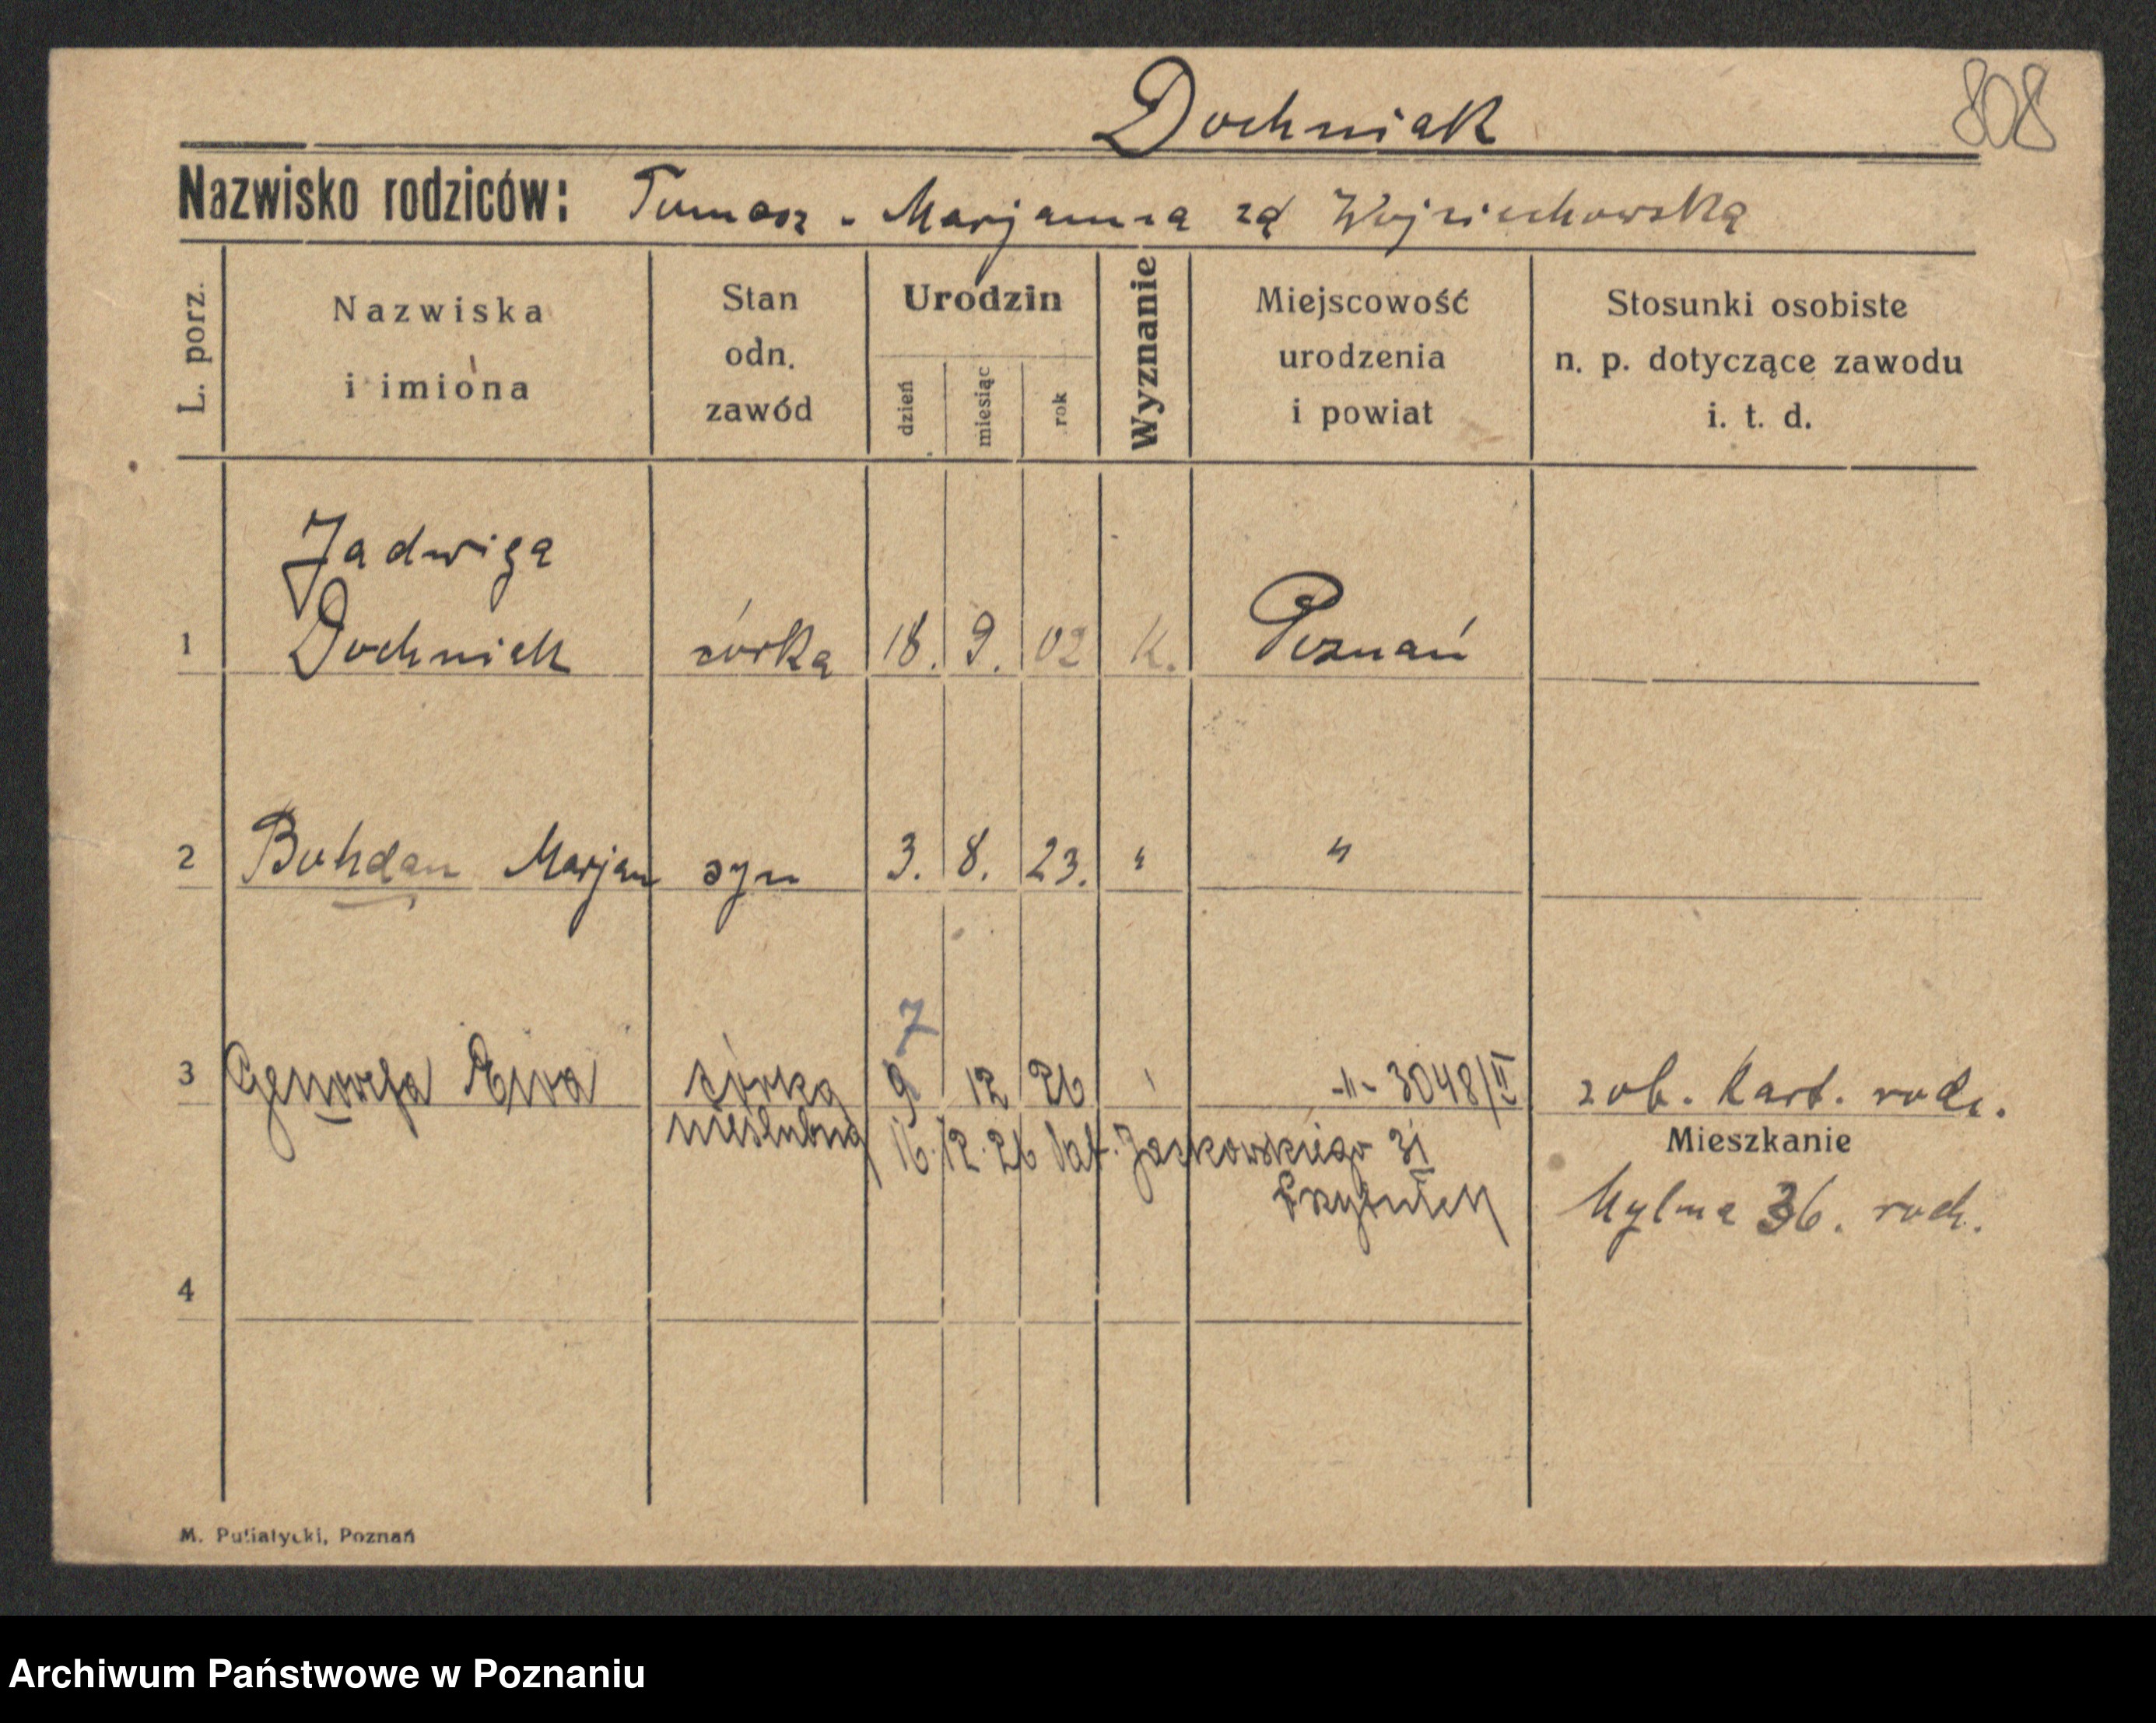 Dochniak
808
Nazwisko rodziców: Tomasz - Marjanna zd Wojciechowska
L. porz.
Nazwiska i imiona
Stan odn. zawód
Urodzin
dzień
miesiąc
rok
Wyznanie
Miejscowość urodzenia i powiat
Stosunki osobiste n. p. dotyczące zawodu i. t. d.
Jadwiga
1 Dochniak córka 18. 9. 02 K. Poznań
2 Bohdan Marjan syn 3. 8. 23. " "
7
3 Genowefa Ewa córka 9 12 26 -"- 3048/II zob. Kart. rodz.
nieślubna 16.12.26 Jackowskiego 31
Mieszkanie
Mylna 36. rodz.
4
M. Putiatycki, Poznań
Archiwum Państwowe w Poznaniu